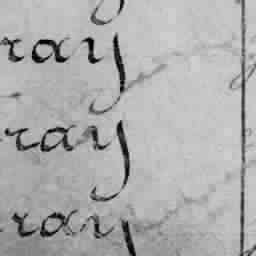 ray
ray
ray